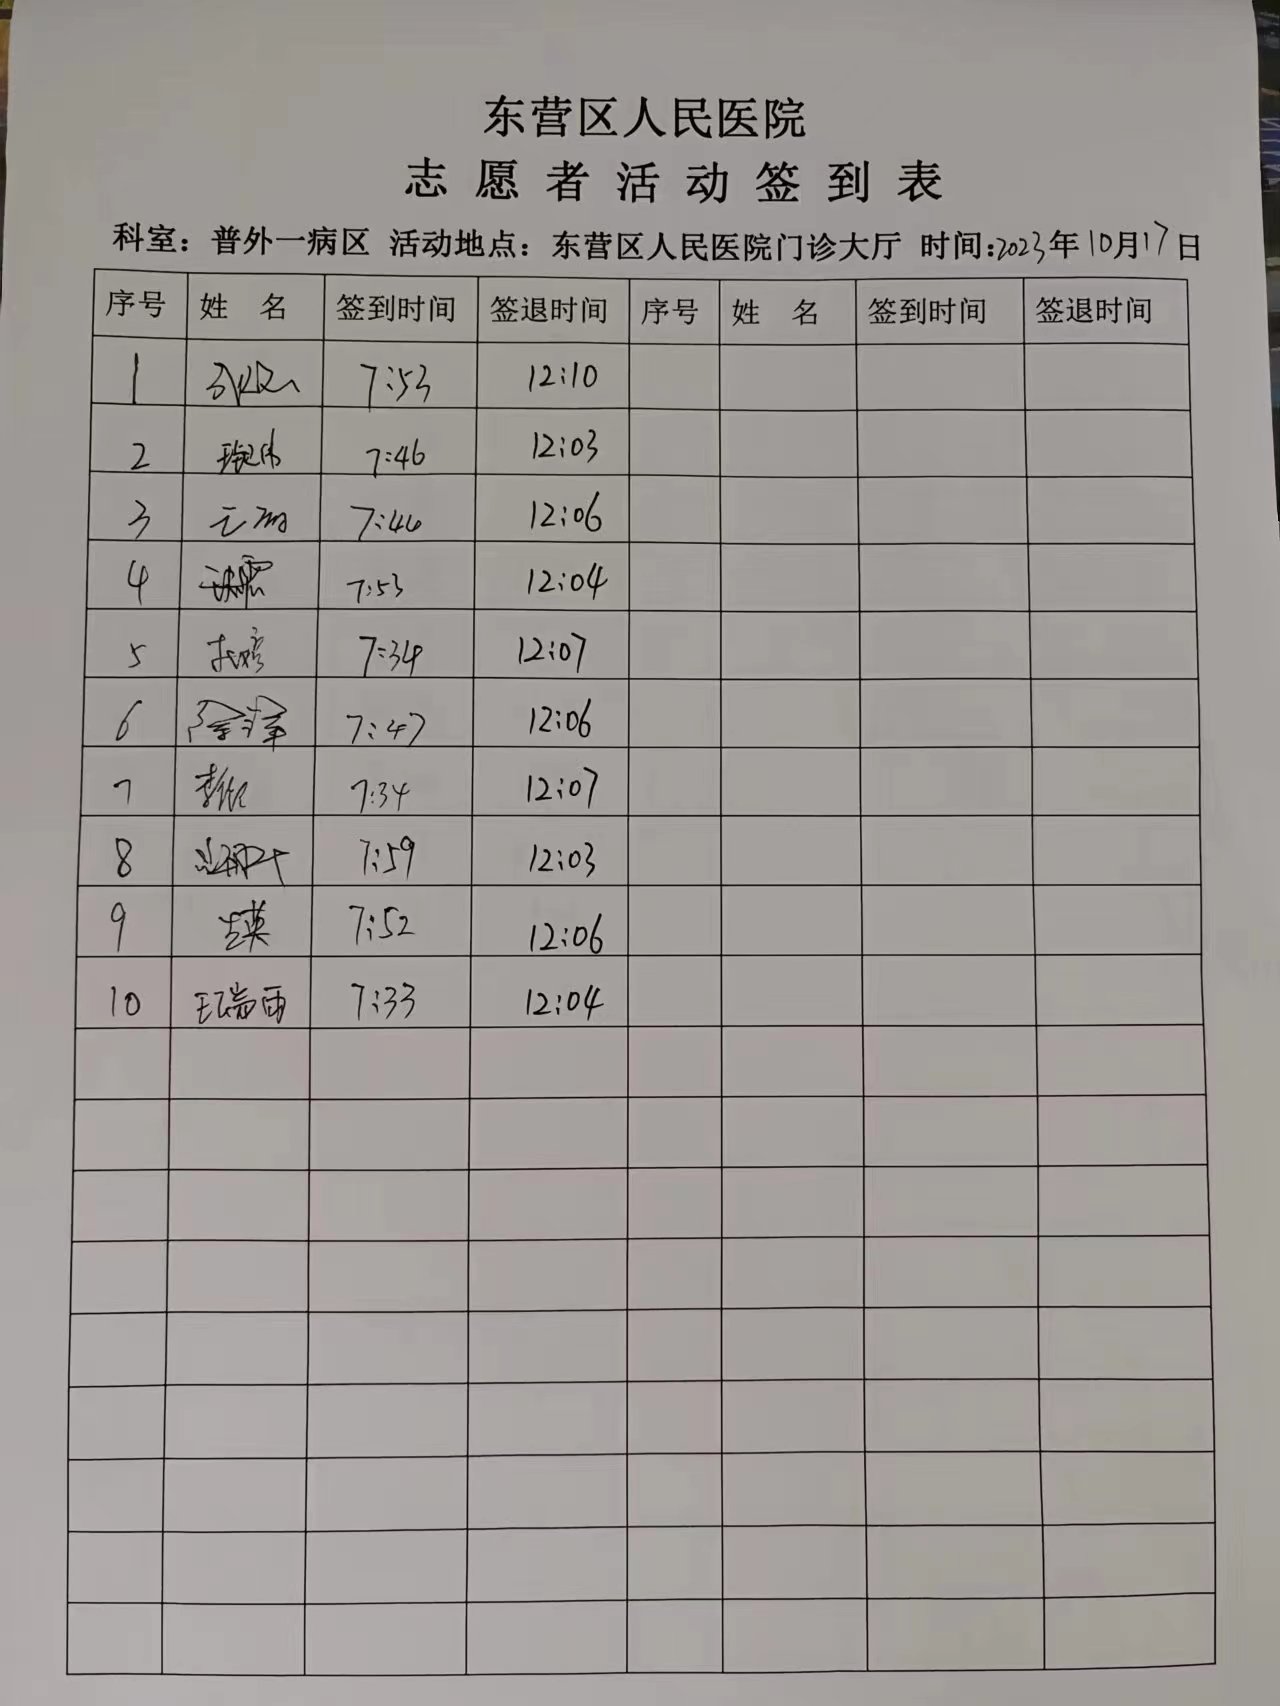 东营区人民医院
志愿者活动签到表
科室：普外一病区 活动地点：东营区人民医院门诊大厅 时间：2023年10月17日
序号 姓名 签到时间 签退时间 序号 姓名 签到时间 签退时间
1 7:53 12:10
2 7:46 12:03
3 12:06
4 7:53 12:04
5 7:34 12:07
6 7:47 12:06
7 7:34 12:07
8 7:59 12:03
9 7:52 12:06
10 王瑞雨 7:33 12:04